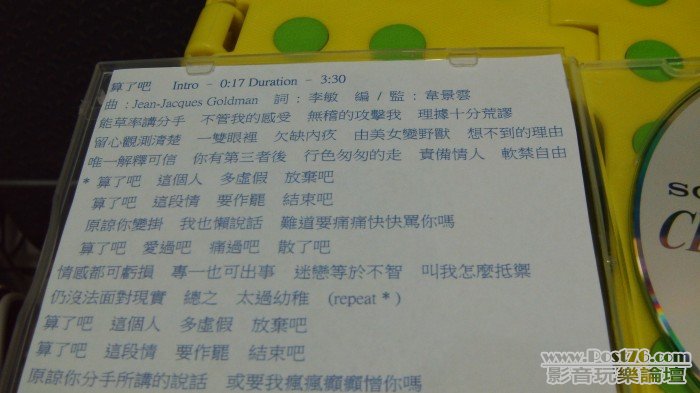 算了吧 Intro - 0:17 Duration - 3:30
曲 : Jean-Jacques Goldman 詞 : 李敏 編 / 監 : 韋景雲
能草率講分手 不管我的感受 無稽的攻擊我 理據十分荒謬
留心觀測清楚 一雙眼裡 欠缺內疚 由美女變野獸 想不到的理由
唯一解釋可信 你有第三者後 行色匆匆的走 責備情人 軟禁自由
* 算了吧 這個人 多虛假 放棄吧
算了吧 這段情 要作罷 結束吧
原諒你變掛 我也懶說話 難道要痛痛快快罵你嗎
算了吧 愛過吧 痛過吧 散了吧
情感都可虧損 專一也可出事 迷戀等於不智 叫我怎麼抵禦
仍沒法面對現實 總之 太過幼稚 (repeat * )
算了吧 這個人 多虛假 放棄吧
算了吧 這段情 要作罷 結束吧
原諒你分手所講的說話 或要我瘋瘋癲癲憎你嗎
www.Post76.com
影音玩樂論壇